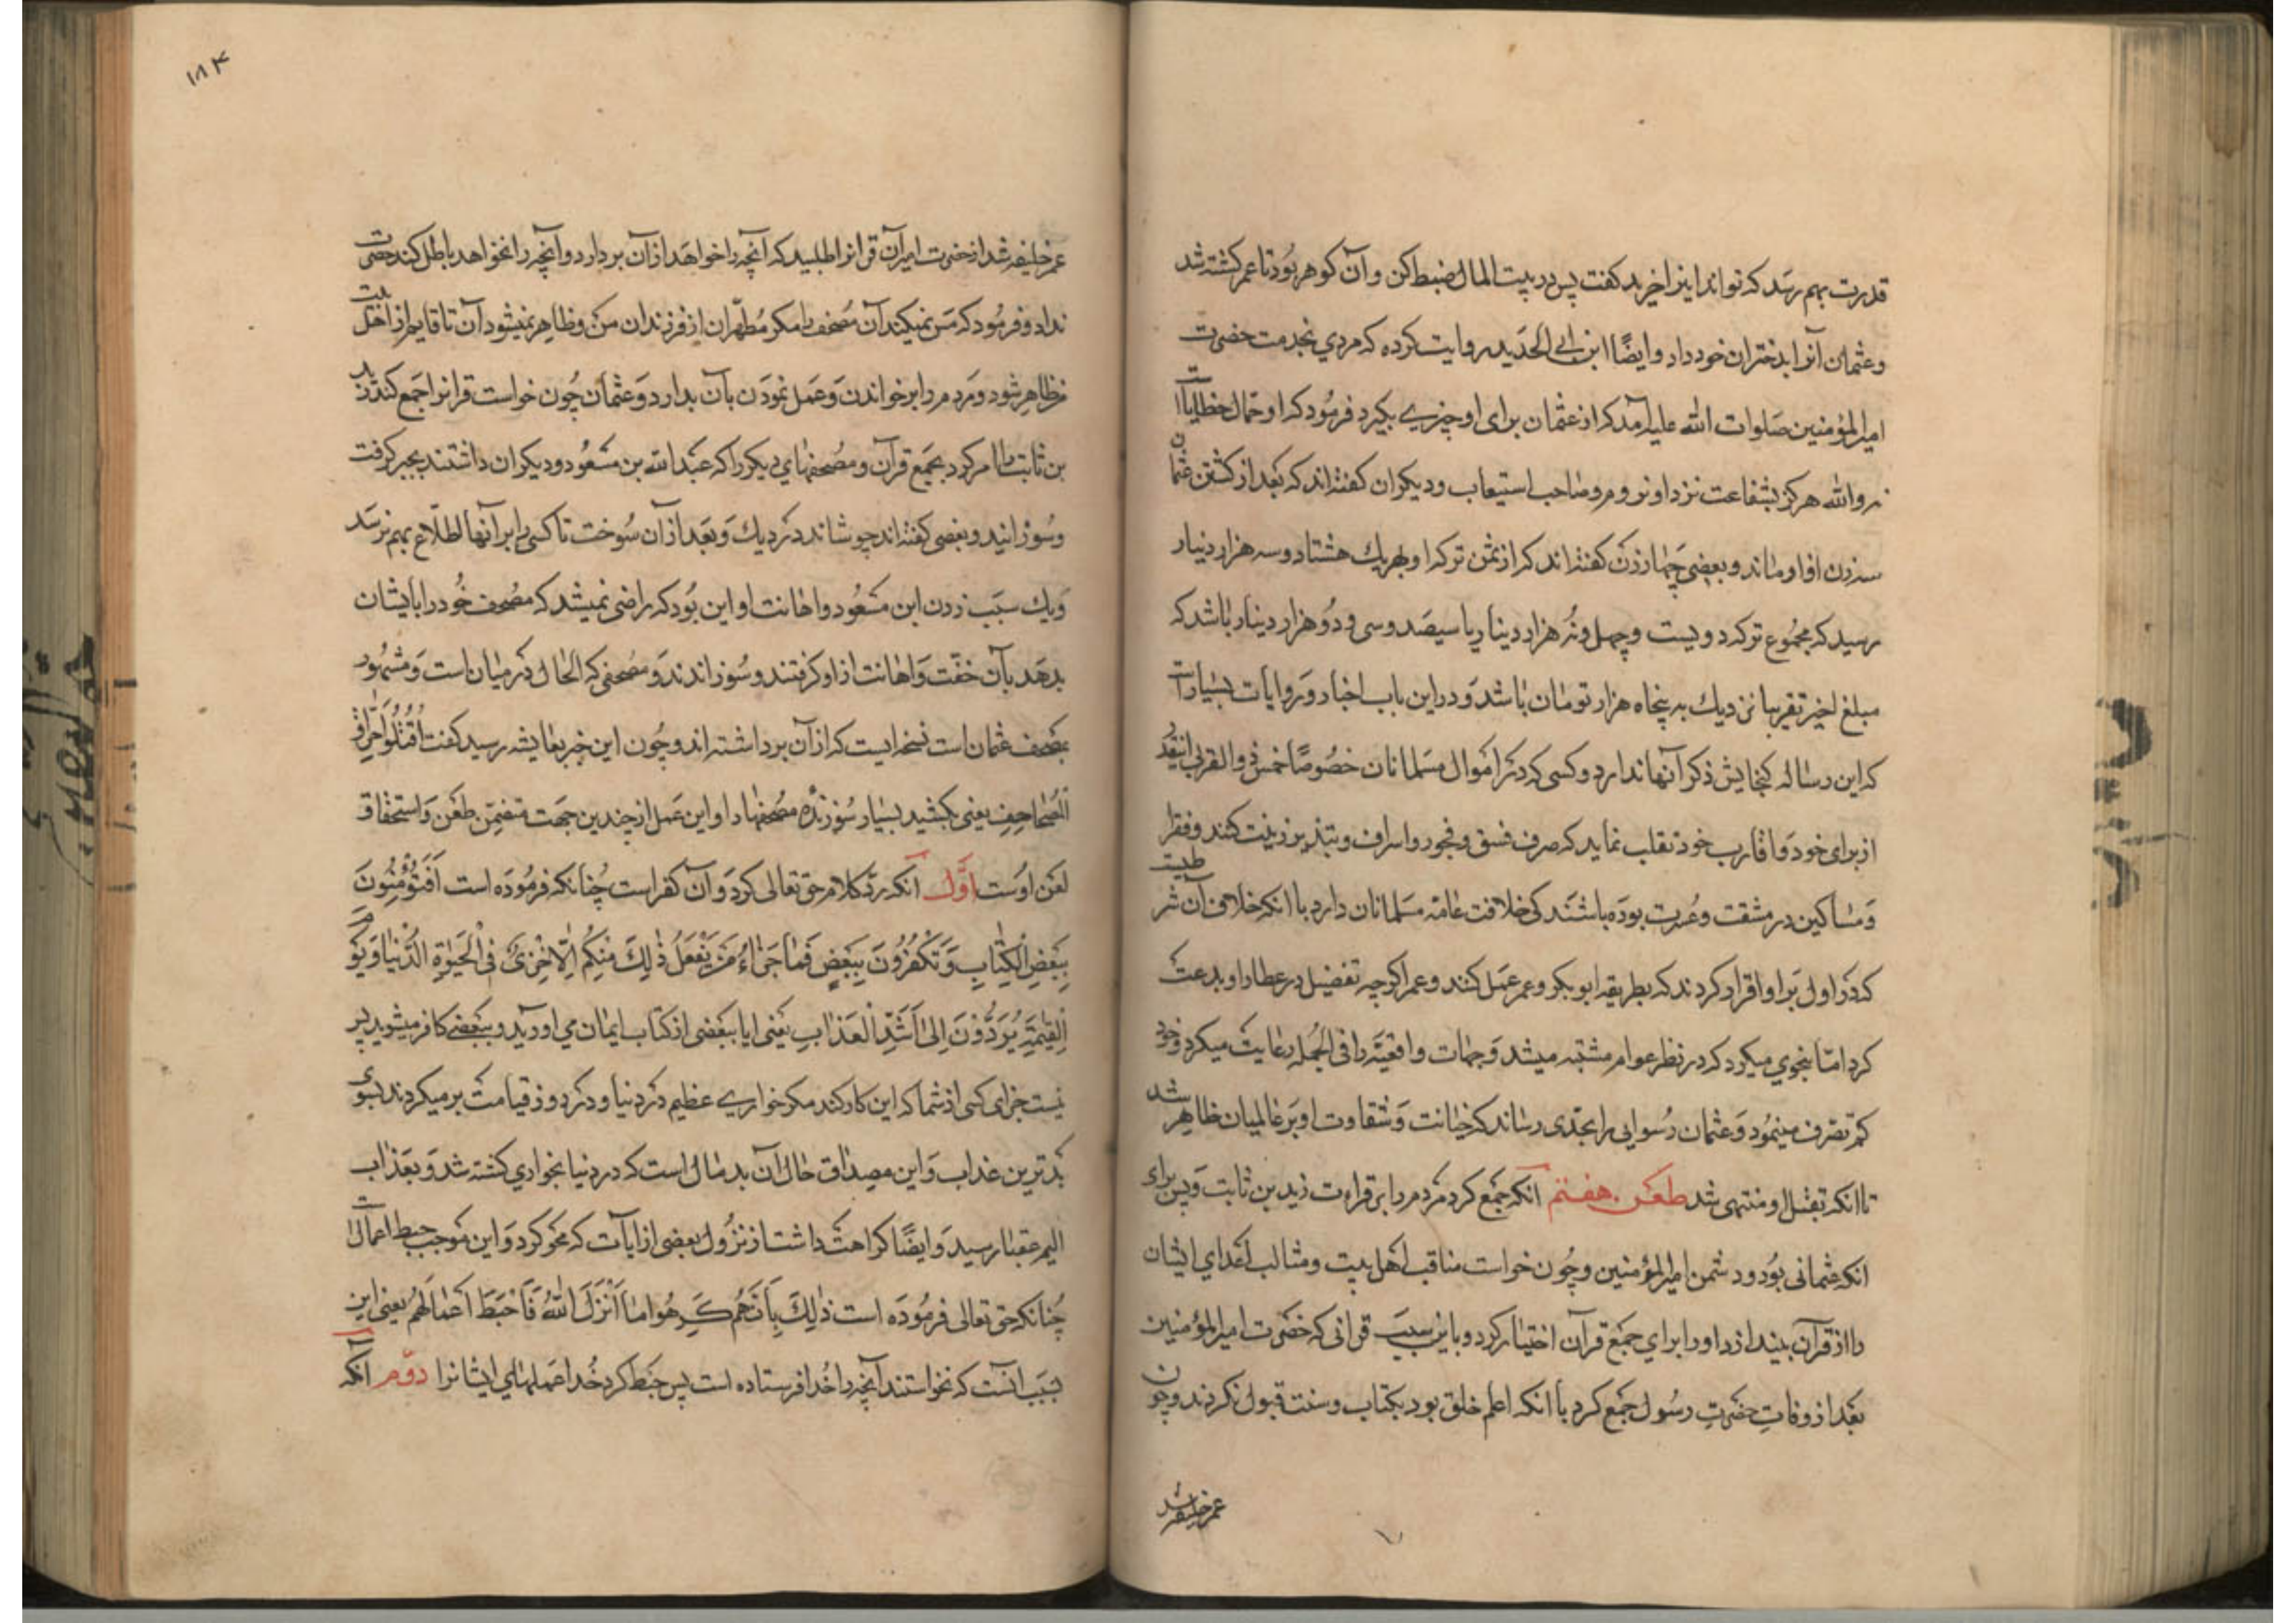 قدرت بهم رسد که تواند اینرا خرید کفت پس در بیت المال ضبط کن و آن کوهر بود تا عمر کشته شد
و عثمان آنرا بدختران خود داد و ایضًا ابن ابی الحدید روایت کرده که مردی بخدمت حضرت
امیر المؤمنین صلوات الله علیه آمد که از عثمان برای او چیزی بکیرد فرمود که او حمال خطایاست
نه والله هرکز بشفاعت نزد او نروم و صاحب استیعاب و دیکران کفته‌اند که بعد از کشتن عثمان
سه زن از او ماند و بعضی چهار زن کفته‌اند که از ثمن ترکه او بهر یک هشتاد و سه هزار دینار
رسید که مجموع ترکه دویست و چهل و نه هزار دینار یا سیصد و سی و دو هزار دینار باشد که
مبلغ اخیر تقریبا نزدیک به پنجاه هزار تومان باشد و در این باب اخبار و روایات بسیار است
که این رساله کنجایش ذکر آنها ندارد و کسی که در اموال مسلمانان خصوصًا خمس ذو القربی اینقدر
از برای خود و اقارب خود تقلب نماید که صرف فسق و فجور و اسراف و تبذیر زینت کنند و فقرا
و مساکین در مشقت و عُسرت بوده باشند کی خلافت عامه مسلمانان دارد با انکه خلاف آن شرطیست
که در اول بر او اقرار کردند که بطریقه ابوبکر و عمر عمل کنند و عمر اکرچه تفضیل در عطا را او بدعت
کرد امّا بنحوی میکرد که در نظر عوام مشتبه میشد و جهات واقعیّه را فی الجُمله رعایت میکرد و خود
کم تصرف مینمُود وَ عثمان رُسوایی را بحدّی رساند که خیانت وَ شقاوت او بر عالمیان ظاهر شد
تا انکه بقتل او منتهی شد طعن هفتم آنکه جمع کرد مردم را بر قراءت زید بن ثابت وَ بس برای
انکه عثمانی بُود و دشمن امیر المؤمنین و چُون خواست مناقب اهل بیت و مثالب اعدای ایشان
را از قرآن بیندازد او را برای جمع قرآن اختیار کرد و باین سبب قرانی که حضرت امیر المؤمنین
بعد از وفاتِ حضرتِ رسُول جمع کرد با انکه اعلم خلق بود بکتاب و سنت قبول نکردند و چون
عمر خلیفه شد
۱۸۴
عمر خلیفه شد از حضرت امیر آن قرانرا طلبید که آنچه را خواهد از آن بردارد و آنچه را نخواهد باطل کند حضرت
نداد و فرمُود که مس نمیکند آن مُصحف را مکر مُطهّران از فرزندان من و ظاهر نمیشود آن تا قایم از اهل بیت
من ظاهر شود و مردم را بر خواندن وَ عمل نمودن بآن بدارد وَ عثمان چُون خواست قرانرا جمع کند زید
بن ثابت را امر کرد بجمع قرآن و مصحفهای دیکر را که عبد الله بن مسعُود و دیکران داشتند بجبر کرفت
و سُوزانید و بعضی کفته‌اند جوشاند در دیک وَ بعد از آن سُوخت تا کسی را بر آنها اطلاع بهم نرسد
وَ یک سبب زدن ابن مسعُود و اهانت او این بُود که راضی نمیشد که مصحف خُود را بایشان
بدهد بآن خفّت وَ اهانت از او کرفتند و سُوزاندند وَ مصحفی که الحال در میان است وَ مشهُور
بمصحف عثمان است نسخه ایست که از آن برداشته‌اند و چُون این خبر بعایشه رسید کفت اُقتُلُوا حَرّاقَ
المَصاحِفِ یعنی بکشید بسیار سُوزنده مصحفها را و این عمل از چندین جهت متضمّن طعن وَ استحقاق
لعن اوست اوّل آنکه ردّ کلام حق تعالی کرد وَ آن کفر است چُنانکه فرمُوده است اَفَتُؤْمِنُونَ
بِبَعْضِ الْکِتابِ وَ تَکْفُرُونَ بِبَعْضٍ فَما جَزاءُ مَنْ یَفْعَلُ ذلِکَ مِنْکُم اِلّا خِزْیٌ فی الْحَیٰوةِ الدُّنْیا وَ یَوْمَ
الْقِیٰمَةِ یُرَدُّونَ اِلیٰ اَشَدِّ الْعَذابِ یعنی ایا ببعضی از کتاب ایمان می اورید و ببعضی کافر میشوید پس
نیست جزای کسی از شما که این کار کند مکر خواری عظیم در دنیا و در روز قیامت بر میکردند بسوی
بدترین عذاب وَ این مصداق حال آن بد مال است که در دنیا بخواری کشته شد وَ بعذاب
الیم عقبا رسید وَ ایضًا کراهت داشت از نزول بعضی از ایات که محو کرد وَ این موجب حبط اعمال است
چُنانکه حق تعالی فرمُوده است ذٰلِکَ بِاَنَّهُمْ کَرِهُوا ما اَنْزَلَ اللّهُ فَاَحْبَطَ اَعْمالَهُمْ یعنی این
بسبب انست که نخواستند آنچه را خُدا فرستاده است پس حبط کرد خُدا عملهای ایشانرا دوّم آنکه